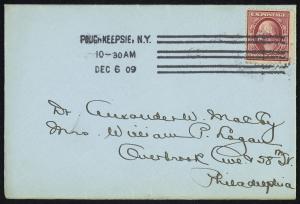 POUGHKEEPSIE, N.Y.
10-30AM
DEC 6 09
U.S. POSTAGE
Dr Alexander W. MacCoy
Mrs. William P. Logan
Overbrook Ave & 58th St.
Philadelphia